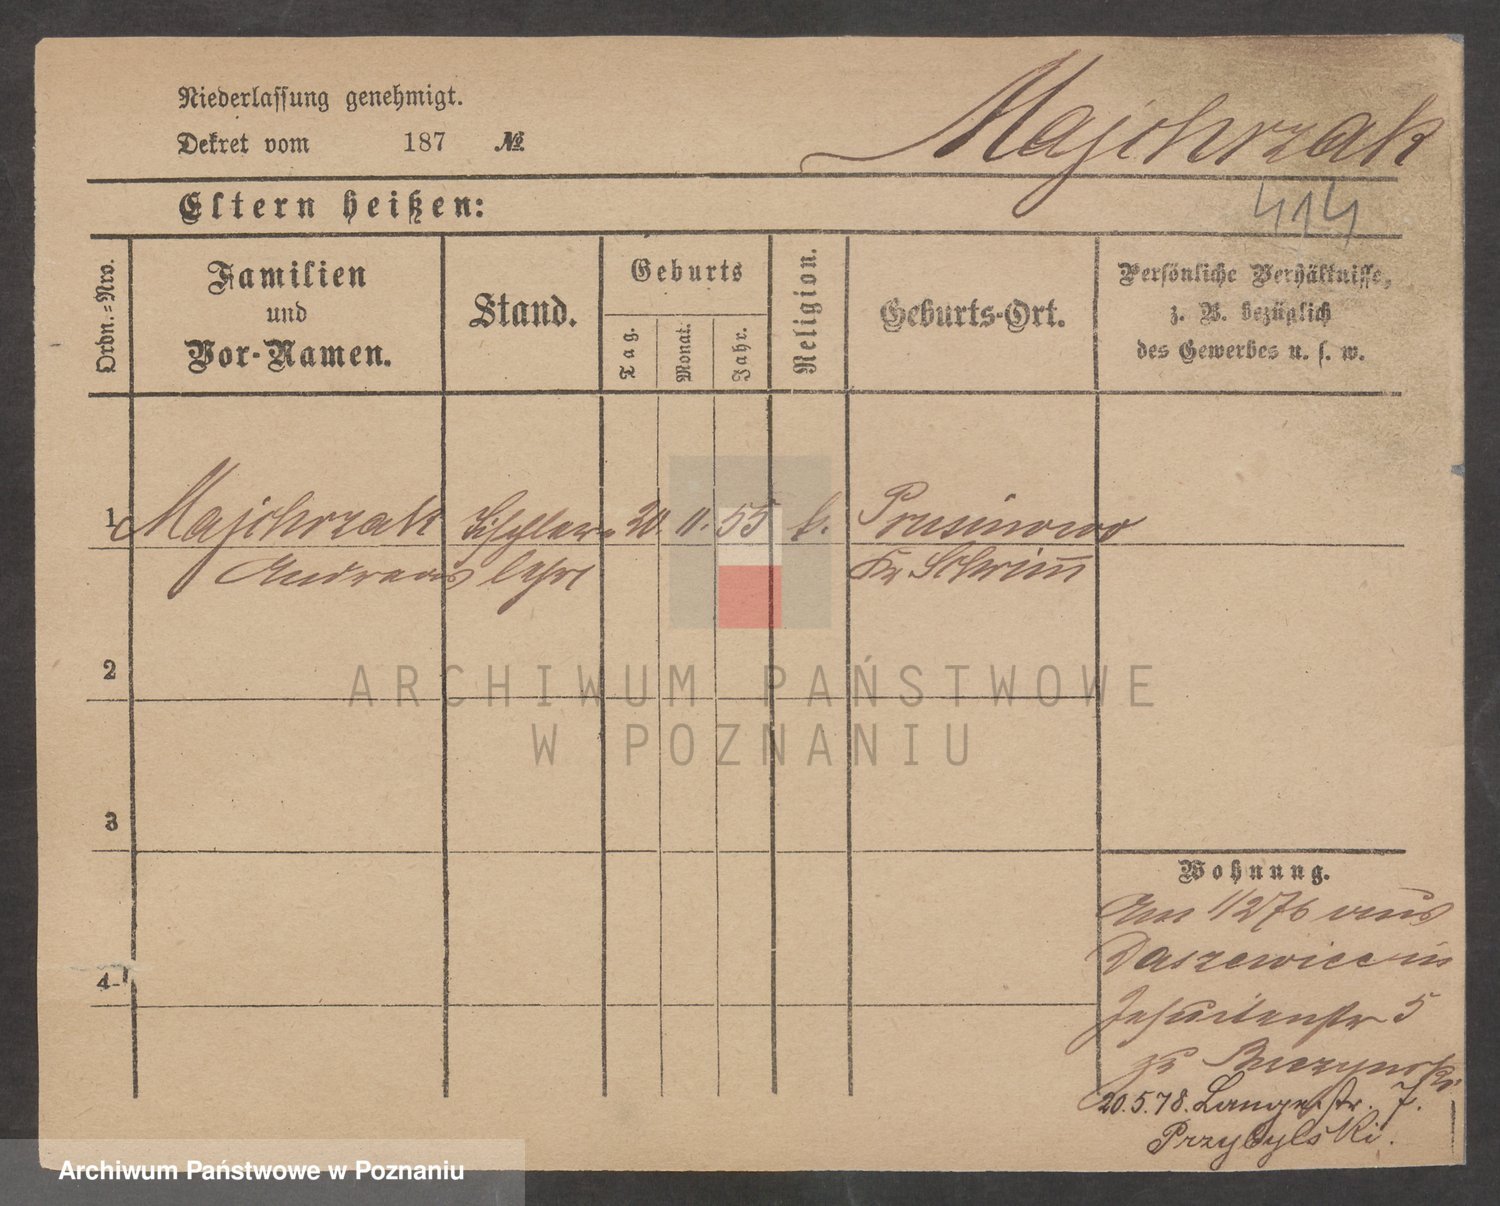 Niederlassung genehmigt.
Dekret vom 187 №
Majchrzak
414
Eltern heißen:
Ordn.-Nro.
Familien
und
Vor-Namen.
Stand.
Geburts
Tag.
Monat.
Jahr.
Religion.
Geburts-Ort.
Persönliche Verhältnisse,
z. B. bezüglich
des Gewerbes u. s. w.
1 Majchrzak Tischler= 20. 11. 55 k. Prusinowo
Andreas lehrl Kr Schrim̅
2
3
4
ARCHIWUM PAŃSTWOWE
W POZNANIU
Wohnung.
Am 11276 aus
Daszewice in
Jesuitenstr 5
zu Buczynski
20.5.78. Langestr. 7.
Przybylski.
Archiwum Państwowe w Poznaniu